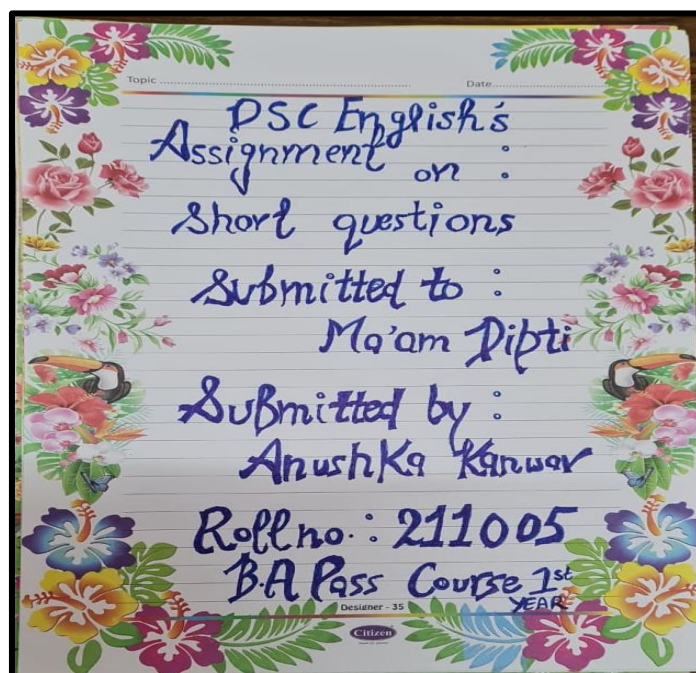 Topic
Date
DSC English's
Assignment on :
Short questions
Submitted to :
Ma'am Dipti
Submitted by :
Anushka Kanwar
Roll no. : 211005
B.A Pass Course 1st
YEAR
Designer - 35
Citizen